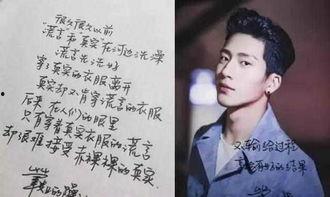 很久很久以前
"谎言和真实"在河边洗澡
谎言先洗好
穿了真实的衣服离开
真实却不肯穿谎言的衣服
后来 在人们的眼里
只有穿着真实衣服的谎言
却很难接受赤裸裸的真实
又输给过程
的结果